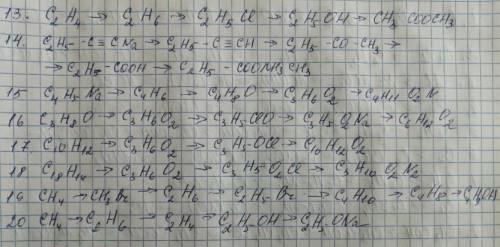 13. C2H4 → C2H6 → C2H5Cl → C2H5OH → CH3 COOCH3
14. C2H5 - C ≡ CNa → C2H5 - C ≡ CH → C2H5 - CO - CH3 →
→ C2H5 - COOH → C2H5 - COONH3CH3
15 C4H5Na → C4H6 → C4H8O → C3H6O2 → C4H11O2N
16 C3H8O → C3H6O2 → C3H5ClO → C3H5O2Na → C6H12O2
17. C10H12 → C3H6O2 → C3H5OCl → C10H12O2
18 C18H14 → C3H6O2 → C3H5O2Cl → C3H10O2N2
19 CH4 → CH3Br → C2H6 → C2H5Br → C4H10 → C4H8 →
20 CH4 → C2H6 → C2H4 → C2H5OH → C2H5ONa